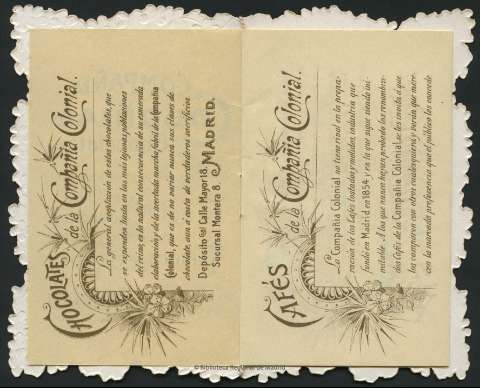 CHOCOLATES
de la Compañía Colonial.
La general aceptación de estos chocolates, que
se expenden hasta en las más lejanas poblaciones
del reino, es la natural consecuencia de su esmerada
elaboración y de la acertada marcha fabril de la Compañía
Colonial, que es de no variar nunca sus clases de
chocolate, aun a costa de verdaderos sacrificios.
Depósito Gral Calle Mayor 18.
Sucursal Montera 8.
MADRID.
CAFÉS
de la Compañía Colonial.
La Compañía Colonial no tiene rival en la prepa-
ración de los Cafés tostados y molidos, industria que
fundó en Madrid en 1854 y en la que sigue siendo ini-
mitable. A los que no han probado los renombra-
dos Cafés de la Compañía Colonial, se les invita á que
los comparen con otros cualesquiera y verán que mere-
cen la marcada preferencia que el público les concede.
© Biblioteca Regional de Madrid